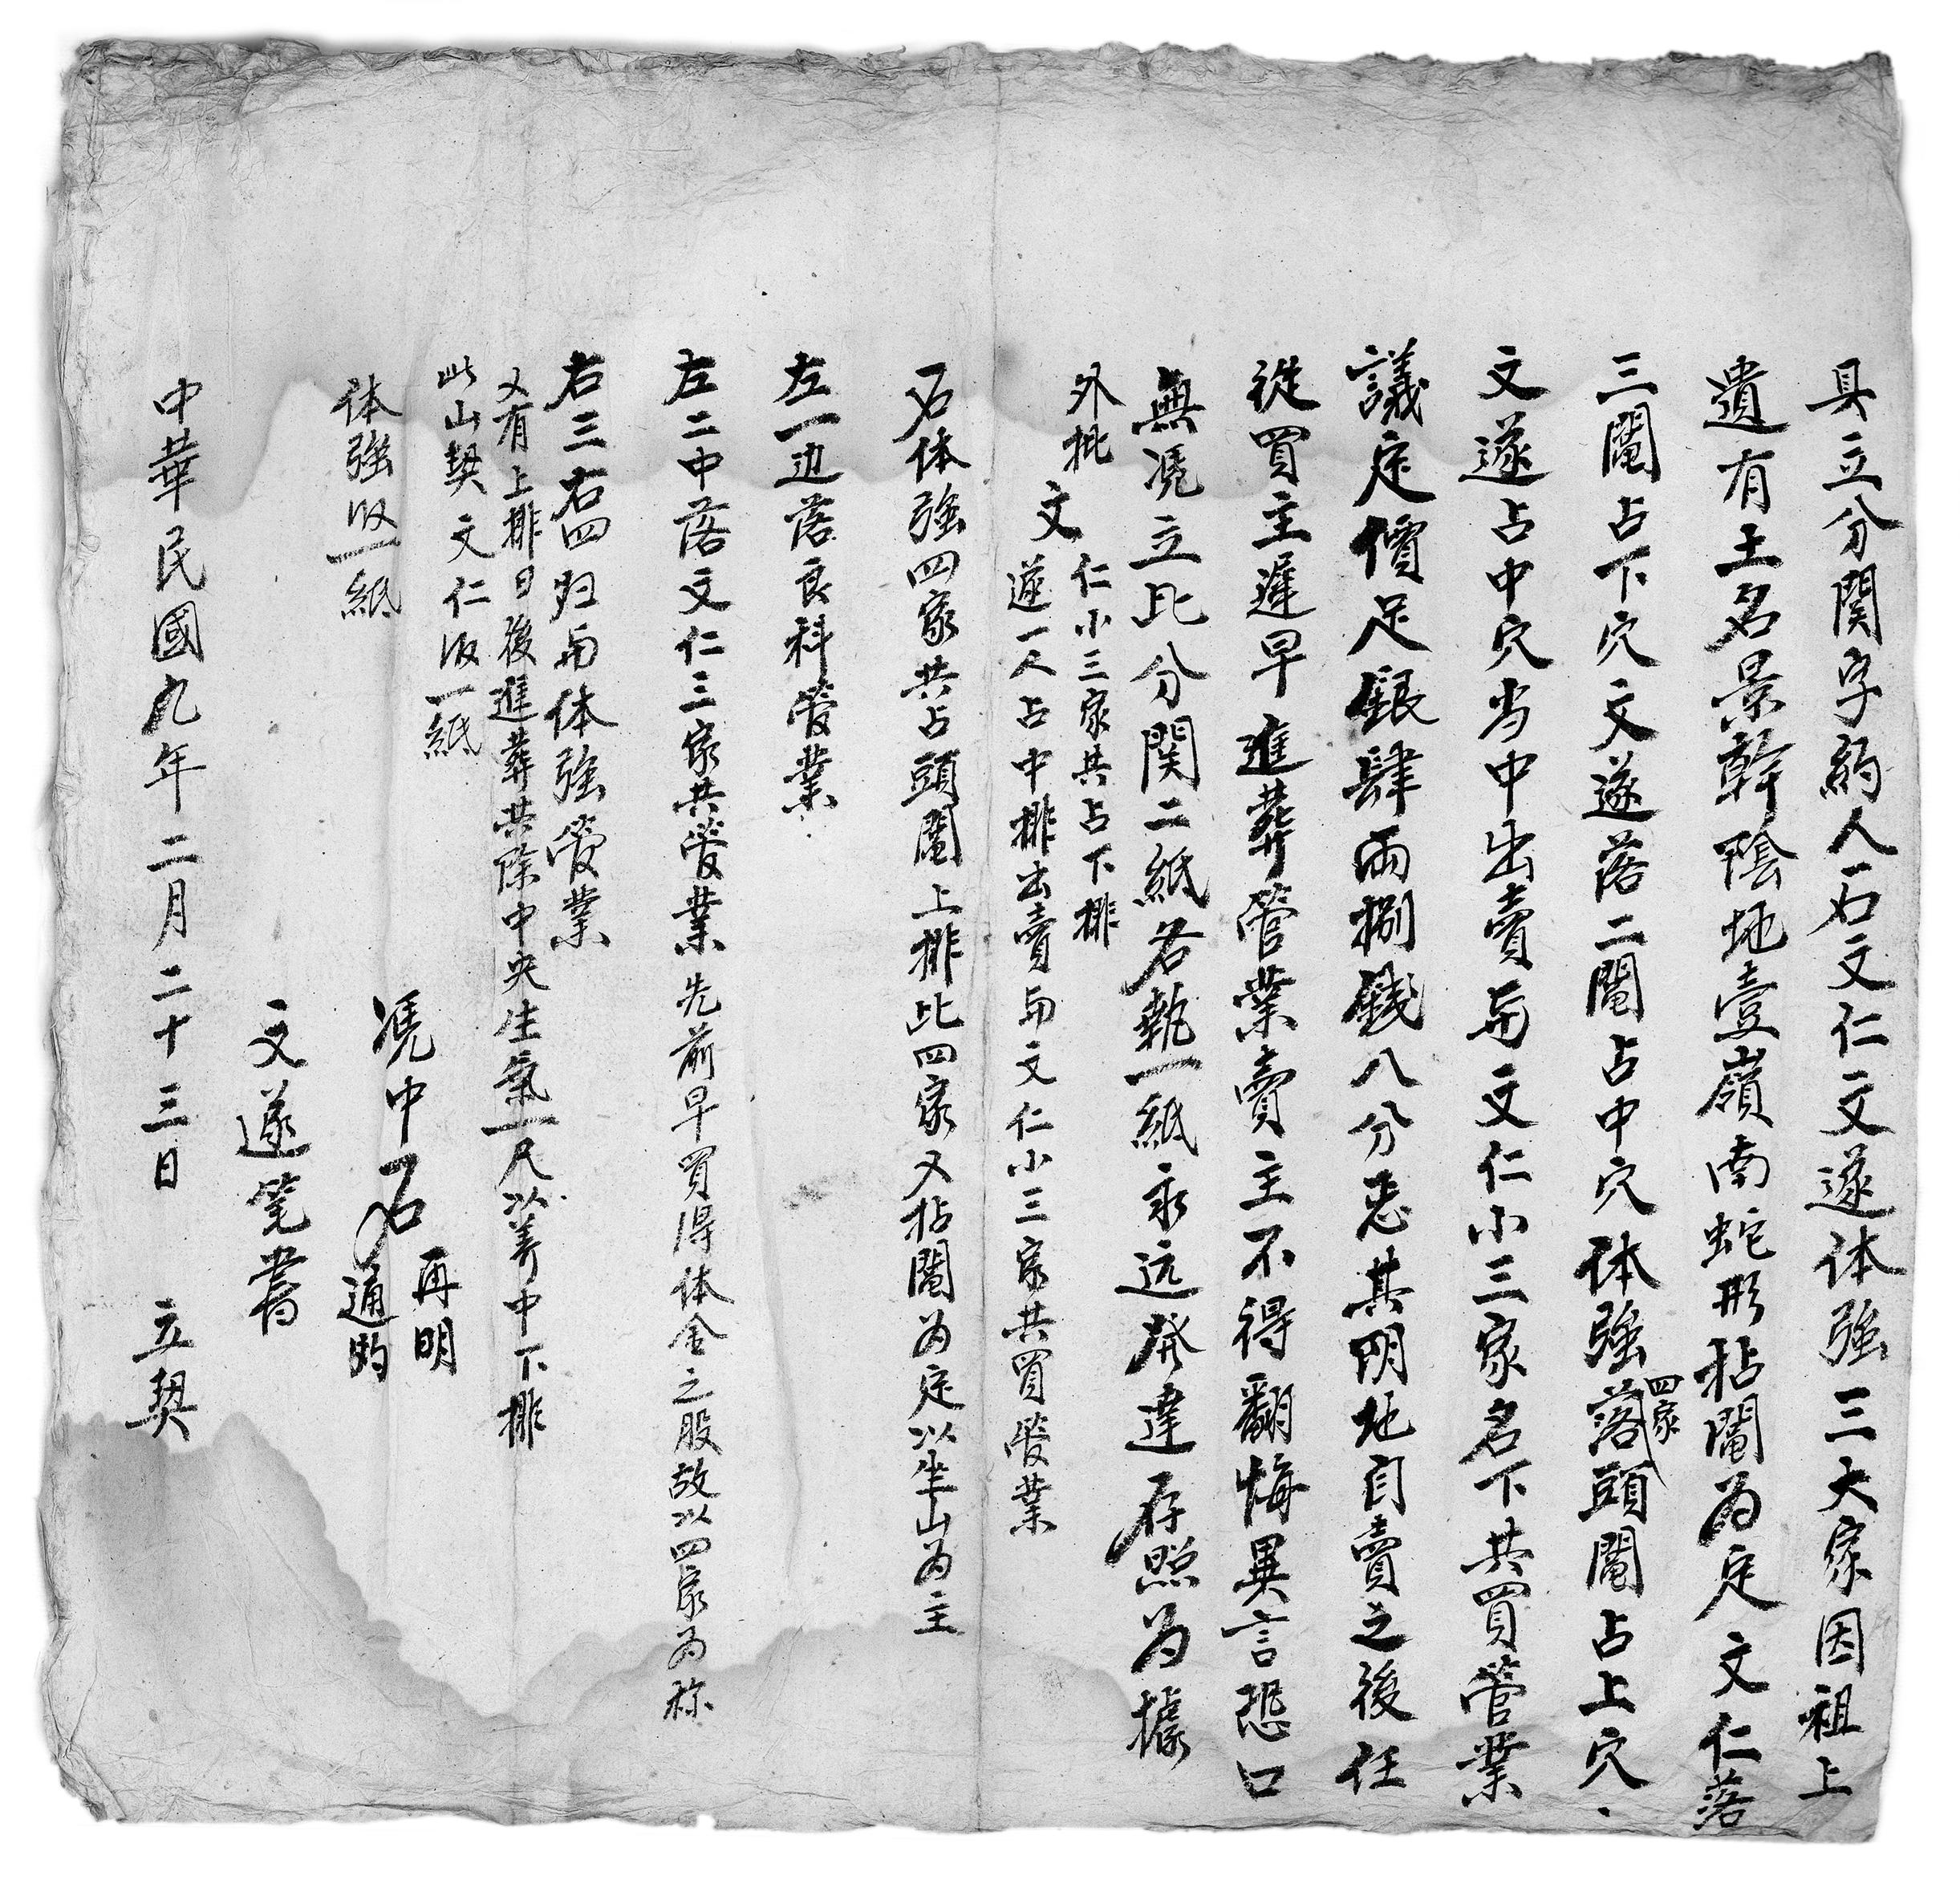 具立分関字約人石文仁文遂体強三大家因祖上
遺有土名景幹陰地壹嶺南蛇形拈鬮为定文仁落
三鬮占下穴文遂落二鬮占中穴体強四家落頭鬮占上穴
文遂占中穴当中出賣与文仁小三家名下共買管業
議定價足銀肆両捌錢八分正其阴地自賣之後任
從買主遲早進葬管業賣主不得翻悔異言恐口
無凴立此分関二紙各執一紙永远發達存照为據
外批 文仁小三家共占下排
文遂一人占中排出賣与文仁小三家共買管業
石体強四家共占頭鬮上排此四家又拈鬮为定以坐山为主
左一边落良科管業
左二中落文仁三家共管業先前早買得体金之股故以四家为称
右三右四归与体強管業
又有上排日後進葬共除中央生氣一尺以美中下排
此山契文仁收一紙
体強收一紙
凴中石再明
通旳
文遂笔書
中華民國九年二月二十三日 立契